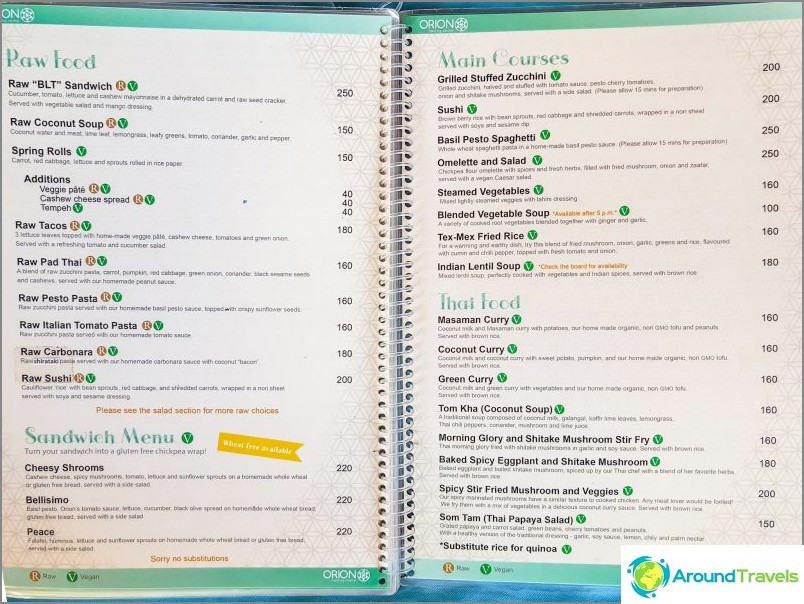 ORION
Raw Food
Raw "BLT" Sandwich R V
250
Cucumber, tomato, lettuce and cashew mayonnaise in a dehydrated carrot and raw seed cracker.
Served with vegetable salad and mango dressing.
Raw Coconut Soup R V
150
Coconut water and meat, lime leaf, lemongrass, leafy greens, tomato, coriander, garlic and pepper.
Spring Rolls V
150
Carrot, red cabbage, lettuce and sprouts rolled in rice paper.
Additions
Veggie pâté R V 40
Cashew cheese spread R V 40
Tempeh V 40
Raw Tacos R V
180
3 lettuce leaves topped with home-made veggie pâté, cashew cheese, tomatoes and green onion.
Served with a refreshing tomato and cucumber salad.
Raw Pad Thai R V
160
A blend of raw zucchini pasta, carrot, pumpkin, red cabbage, green onion, coriander, black sesame seeds
and cashews, served with our homemade peanut sauce.
Raw Pesto Pasta R V
160
Raw zucchini pasta served with our homemade basil pesto sauce, topped with crispy sunflower seeds.
Raw Italian Tomato Pasta R V
160
Raw zucchini pasta served with our homemade tomato sauce.
Raw Carbonara R V
180
Raw shirataki pasta served with our homemade carbonara sauce with coconut "bacon".
Raw Sushi R V
200
Cauliflower 'rice' with bean sprouts, red cabbage, and shredded carrots, wrapped in a nori sheet
served with soya and sesame dressing.
Please see the salad section for more raw choices
Sandwich Menu V
Wheat free available
Turn your sandwich into a gluten free chickpea wrap!
Cheesy Shrooms
220
Cashew cheese, spicy mushrooms, tomato, lettuce and sunflower sprouts on a homemade whole wheat
or gluten free bread, served with a side salad.
Bellisimo
220
Basil pesto, Orion's tomato sauce, lettuce, cucumber, black olive spread on homemade whole wheat bread,
gluten free bread, served with a side salad
Peace
220
Falafel, hummus, lettuce and sunflower sprouts on homemade whole wheat bread or gluten free bread,
served with a side salad.
Sorry no substitutions
R Raw V Vegan
ORION
ORION
healing centre
Main Courses
Grilled Stuffed Zucchini V
200
Grilled zucchini, halved and stuffed with tomato sauce, pesto cherry tomatoes,
onion and shitake mushrooms, served with a side salad. (Please allow 15 mins for preparation)
Sushi V
200
Brown berry rice with bean sprouts, red cabbage and shredded carrots, wrapped in a nori sheet
served with soya and sesame dip
Basil Pesto Spaghetti V
250
Whole wheat spaghetti pasta in a home-made basil pesto sauce. (Please allow 15 mins for preparation)
Omelette and Salad V
250
Chickpea flour omelette with spices and fresh herbs, filled with fried mushroom, onion and zaatar,
served with a vegan Caesar salad.
Steamed Vegetables V
160
Mixed lightly steamed veggies with tahini dressing
Blended Vegetable Soup *Available after 5 p.m.* V
100
A variety of cooked root vegetables blended together with ginger and garlic.
Tex-Mex Fried Rice V
160
For a warming and earthy dish, try this blend of fried mushroom, onion, garlic, greens and rice, flavoured
with cumin and chilli pepper, topped with fresh tomato and onion.
Indian Lentil Soup V *Check the board for availability
180
Mixed lentil soup, perfectly cooked with vegetables and Indian spices, served with brown rice
Thai Food
Masaman Curry V
160
Coconut milk and Masaman curry with potatoes, our home made organic, non GMO tofu and peanuts.
Served with brown rice.
Coconut Curry V
160
Coconut milk and coconut curry with sweet potato, pumpkin, and our home made organic, non GMO tofu.
Served with brown rice.
Green Curry V
160
Coconut milk and green curry with vegetables and our home made organic, non GMO tofu.
Served with brown rice.
Tom Kha (Coconut Soup) V
160
A traditional soup composed of coconut milk, galangal, kaffir lime leaves, lemongrass,
Thai chili peppers, coriander, mushroom and lime juice.
Morning Glory and Shitake Mushroom Stir Fry V
160
Thai morning glory fried with shitake mushrooms in garlic and soy sauce. Served with brown rice.
Baked Spicy Eggplant and Shitake Mushroom V
180
Baked eggplant and boiled shitake mushroom, spiced up by our Thai chef with a blend of her favorite herbs.
Served with brown rice
Spicy Stir Fried Mushroom and Veggies V
200
Our spicy marinated mushrooms have a similar texture to cooked chicken. Any meat lover would be fooled!
We fry them with a mix of vegetables in a delicious coconut curry sauce. Served with brown rice.
Som Tam (Thai Papaya Salad) V
150
Grated papaya and carrot salad, green beans, cherry tomatoes and peanuts.
With a healthy version of the traditional dressing - garlic, soy sauce, lemon, chily and palm nectar
*Substitute rice for quinoa V
R Raw V Vegan
AroundTravels